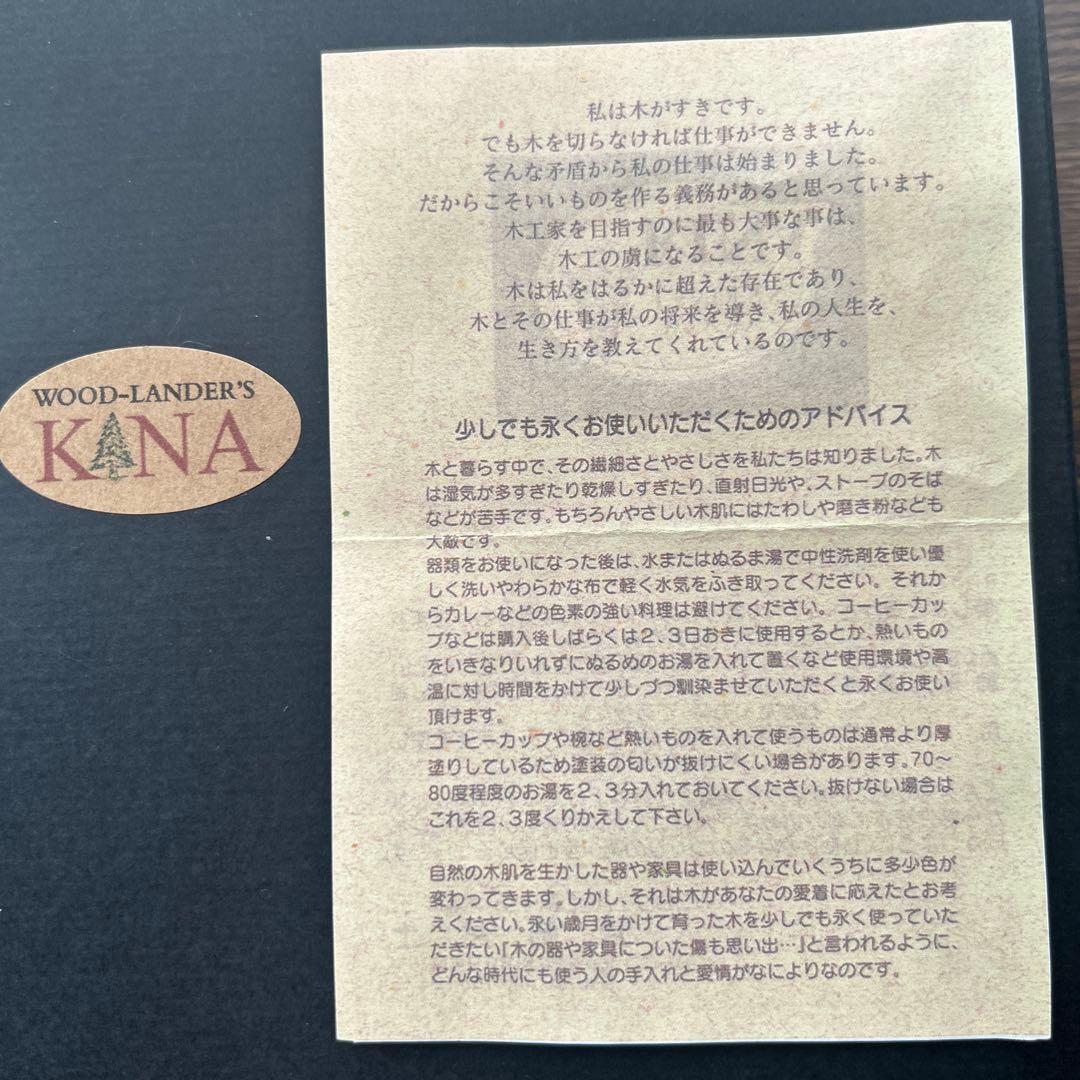 WOOD-LANDER'S
KANA
私は木がすきです。
でも木を切らなければ仕事ができません。
そんな矛盾から私の仕事は始まりました。
だからこそいいものを作る義務があると思っています。
木工家を目指すのに最も大事な事は、
木工の虜になることです。
木は私をはるかに超えた存在であり、
木とその仕事が私の将来を導き、私の人生を、
生き方を教えてくれているのです。
少しでも永くお使いいただくためのアドバイス
木と暮らす中で、その繊細さとやさしさを私たちは知りました。木
は湿気が多すぎたり乾燥しすぎたり、直射日光や、ストーブのそば
などが苦手です。もちろんやさしい木肌にはたわしや磨き粉なども
大敵です。
器類をお使いになった後は、水またはぬるま湯で中性洗剤を使い優
しく洗いやわらかな布で軽く水気をふき取ってください。それか
らカレーなどの色素の強い料理は避けてください。コーヒーカッ
プなどは購入後しばらくは2、3日おきに使用するとか、熱いもの
をいきなりいれずにぬるめのお湯を入れて置くなど使用環境や高
温に対し時間をかけて少しづつ馴染ませていただくと永くお使い
頂けます。
コーヒーカップや椀など熱いものを入れて使うものは通常より厚
塗りしているため塗装の匂いが抜けにくい場合があります。70〜
80度程度のお湯を2、3分入れておいてください。抜けない場合は
これを2、3度くりかえして下さい。
自然の木肌を生かした器や家具は使い込んでいくうちに多少色が
変わってきます。しかし、それは木があなたの愛着に応えたとお考
えください。永い歳月をかけて育った木を少しでも永く使っていた
だきたい「木の器や家具についた傷も思い出…」と言われるように、
どんな時代にも使う人の手入れと愛情がなによりなのです。